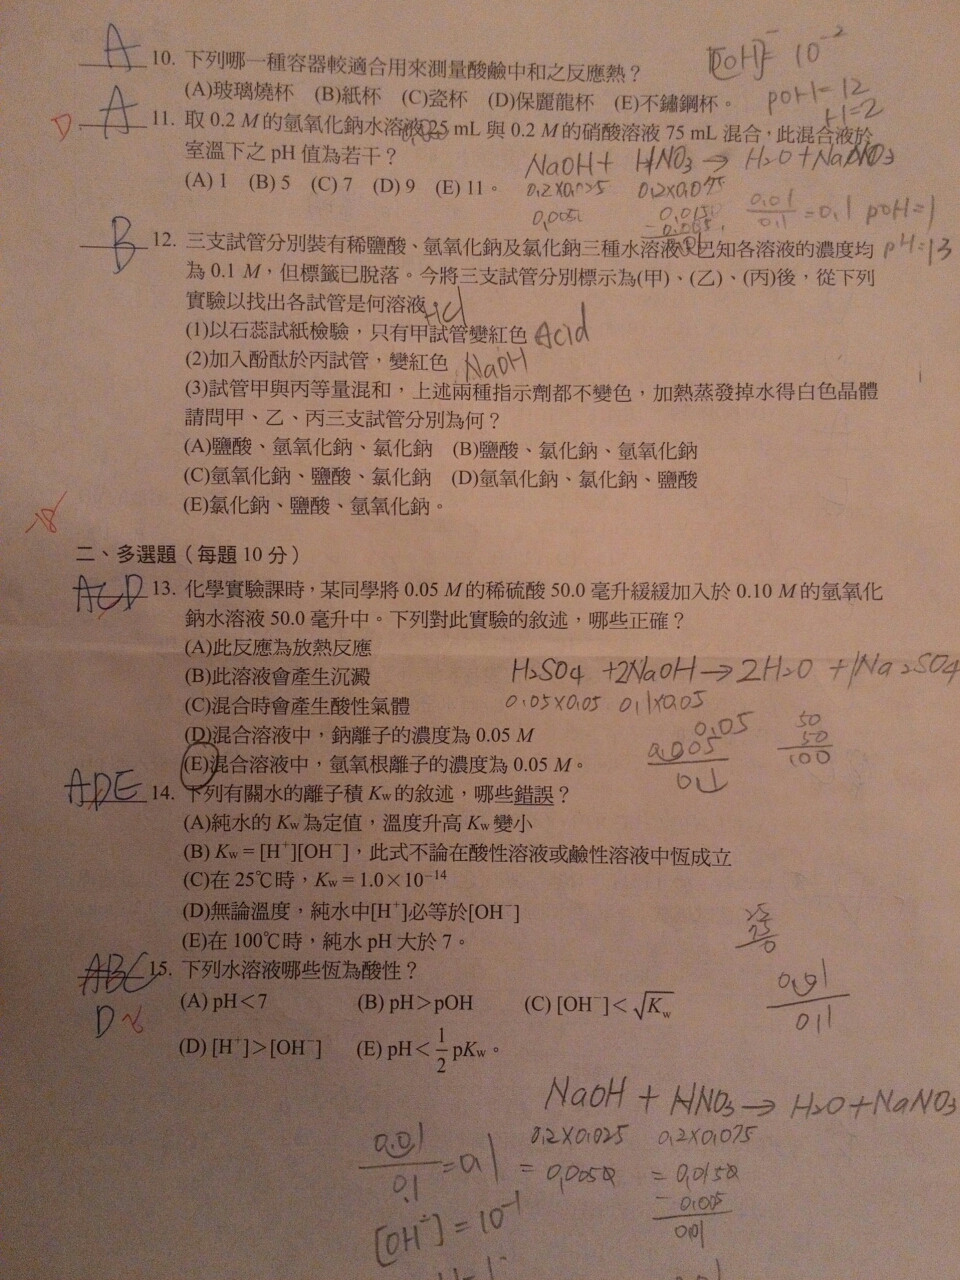 A 10. 下列哪一種容器較適合用來測量酸鹼中和之反應熱？
[OH]⁻= 10⁻²
(A)玻璃燒杯 (B)紙杯 (C)瓷杯 (D)保麗龍杯 (E)不鏽鋼杯。
pOH=12
H=2
D. A 11. 取 0.2 M 的氫氧化鈉水溶液 25 mL 與 0.2 M 的硝酸溶液 75 mL 混合，此混合液於
室溫下之 pH 值為若干？
NaOH + HNO₃ → H₂O + NaNO₃
(A) 1 (B) 5 (C) 7 (D) 9 (E) 11。
0.2×0.025 0.2×0.075
0.01/0.1 = 0.1 pOH=1
pH=13
B 12. 三支試管分別裝有稀鹽酸、氫氧化鈉及氯化鈉三種水溶液。已知各溶液的濃度均
為 0.1 M，但標籤已脫落。今將三支試管分別標示為(甲)、(乙)、(丙)後，從下列
實驗以找出各試管是何溶液：
HCl
(1)以石蕊試紙檢驗，只有甲試管變紅色 Acid
(2)加入酚酞於丙試管，變紅色 NaOH
(3)試管甲與丙等量混和，上述兩種指示劑都不變色，加熱蒸發掉水得白色晶體
請問甲、乙、丙三支試管分別為何？
(A)鹽酸、氫氧化鈉、氯化鈉 (B)鹽酸、氯化鈉、氫氧化鈉
(C)氫氧化鈉、鹽酸、氯化鈉 (D)氫氧化鈉、氯化鈉、鹽酸
(E)氯化鈉、鹽酸、氫氧化鈉。
-18
二、多選題（每題 10 分）
ACD 13. 化學實驗課時，某同學將 0.05 M 的稀硫酸 50.0 毫升緩緩加入於 0.10 M 的氫氧化
鈉水溶液 50.0 毫升中。下列對此實驗的敘述，哪些正確？
(A)此反應為放熱反應
(B)此溶液會產生沉澱
H₂SO₄ +2NaOH → 2H₂O + 1Na₂SO₄
(C)混合時會產生酸性氣體
0.05×0.05 0.1×0.05
(D)混合溶液中，鈉離子的濃度為 0.05 M
0.05
0.005/0.1
50
50
100
(E)混合溶液中，氫氧根離子的濃度為 0.05 M。
ADE 14. 下列有關水的離子積 Kw 的敘述，哪些錯誤？
(A)純水的 Kw 為定值，溫度升高 Kw 變小
(B) Kw = [H⁺][OH⁻]，此式不論在酸性溶液或鹼性溶液中恆成立
(C)在 25℃時，Kw = 1.0×10⁻¹⁴
(D)無論溫度，純水中[H⁺]必等於[OH⁻]
(E)在 100℃時，純水 pH 大於 7。
ABC 15. 下列水溶液哪些恆為酸性？
(A) pH＜7 (B) pH＞pOH (C) [OH⁻]＜√Kw
0.01/0.1
D
(D) [H⁺]＞[OH⁻] (E) pH＜1/2 pKw。
NaOH + HNO₃ → H₂O + NaNO₃
0.2×0.025 0.2×0.075
0.01/0.1 = 0.1
= 0.0050 = 0.0150
- 0.005
0.01
[OH⁻] = 10⁻¹